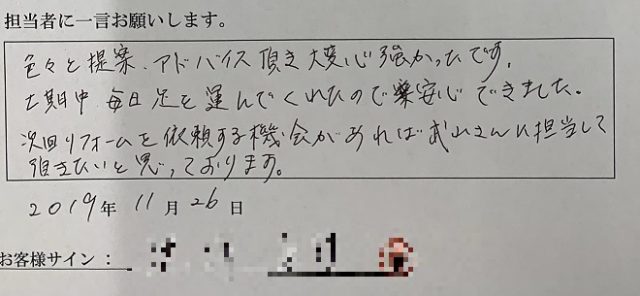 担当者に一言お願いします。
色々と提案、アドバイス頂き大変心強かったです。
工期中 毎日足を運んでくれたので 安心できました。
次回リフォームを依頼する機会があれば武山さんに担当して
頂きたいと思っております。
2019年 11月 26日
お客様サイン: